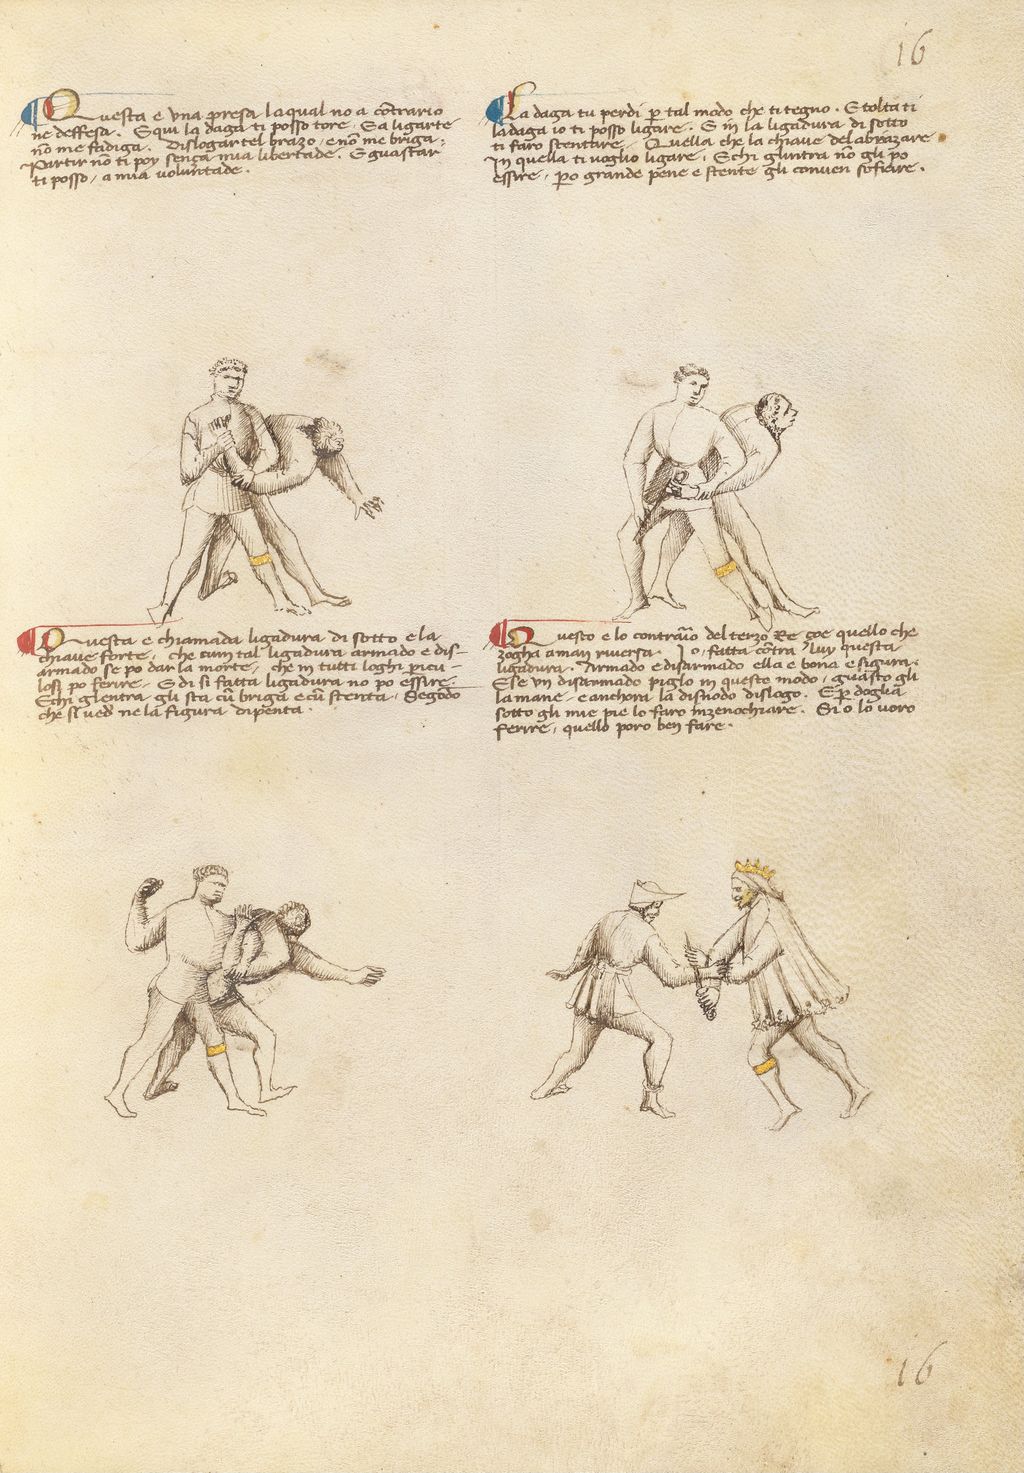 16
Questa e una presa la qual no a contrario
ne deffesa. E qui la daga ti posso tore. E a ligarte
nō me fadiga. Dislogartel brazo, e nō me briga.
Partir nō ti poy sença mia libertade. E guastar
ti posso, a mia voluntade.
La daga tu perdi p̄ tal modo che ti tegno. E tolta ti
la daga io ti posso ligare. E in la ligadura di sotto
ti faro stentare. Quella che la chiave del abrazare
In quella ti voglio ligare. E chi gl'intra nō gli po
essire, p̄o grande pene e stente gli conven soficire.
Questa e chiamada ligadura di sotto e la
chiave forte, che cum tal ligadura armado e dis-
armado se po dar la morte, che in tutti loghi picu-
losi po ferire. E di si fatta ligadura no po essire.
E chi gl'entra gli sta cū briga e cū stenta. Segōdo
che si vedȩ ne la figura dipenta.
Questo e lo contrāio del terzo Re çoe quello che
zogha a man riversa. Io, fatta cōtra luy questa
ligadura. Armado e disarmado ella e bona e sigura.
E se un disarmado piglo in questo modo, guasto gli
la mane, e anchora la disnodo dislogo. E p̄ doglia
sotto gli mie pie lo faro inzenochiare. Si o lo voro
ferire, quello poro ben fare.
16